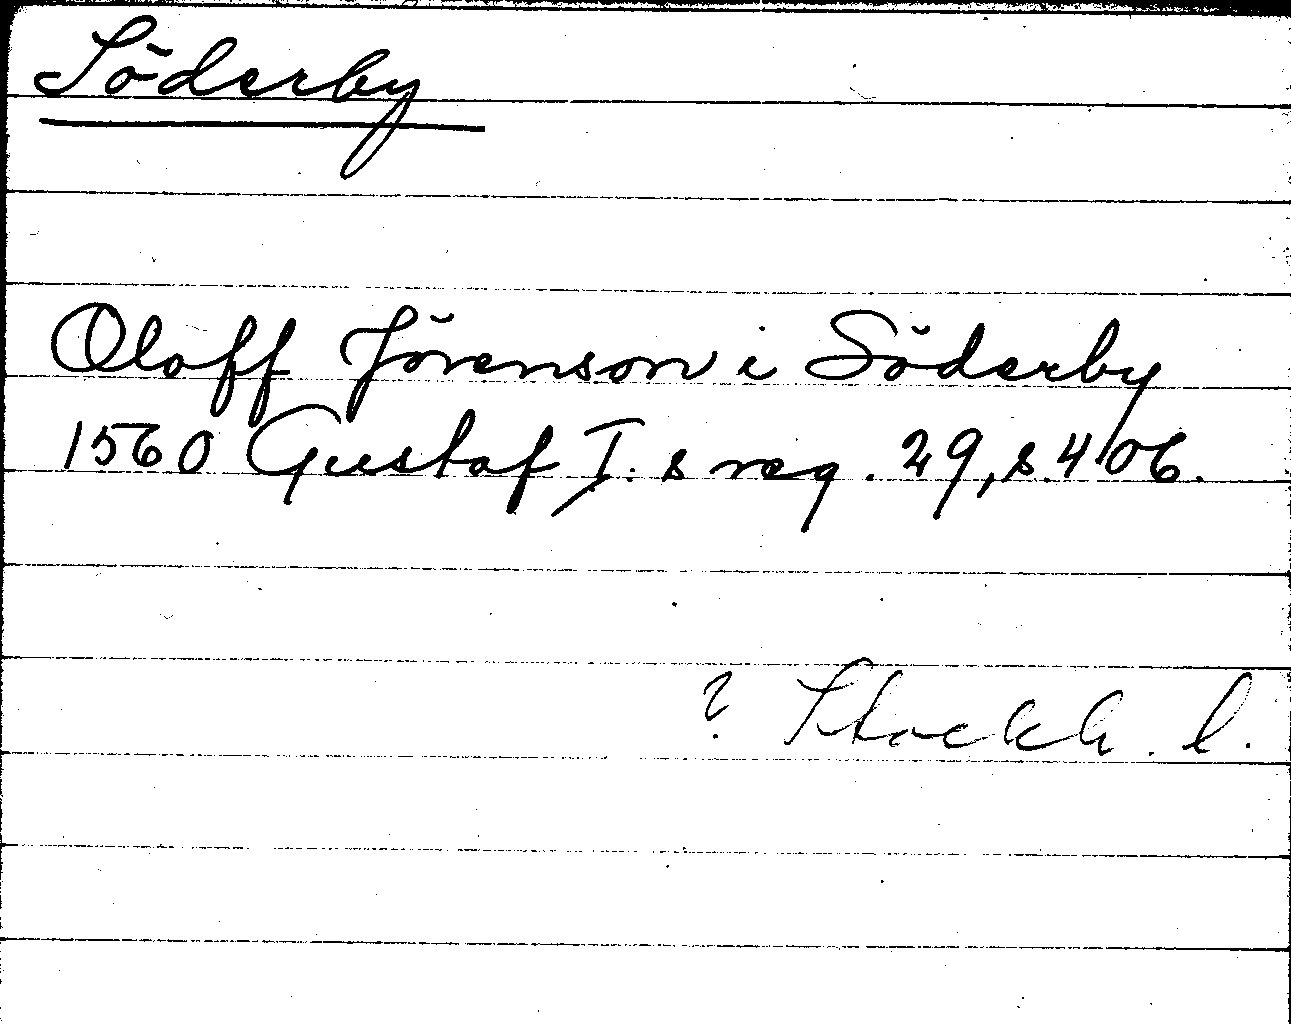 Söderby
Oloff Jörenson i Söderby
1560 Gustaf I. s reg. 29, s. 406.
? Stockh. l.